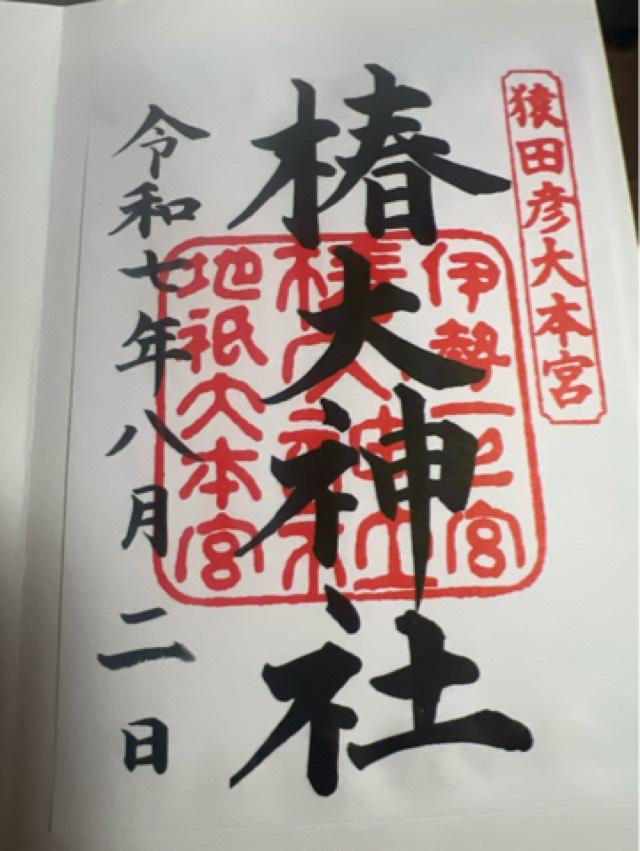 猿田彦大本宮
椿大神社
伊勢一之宮
椿大神社
地祇大本宮
令和七年八月二日